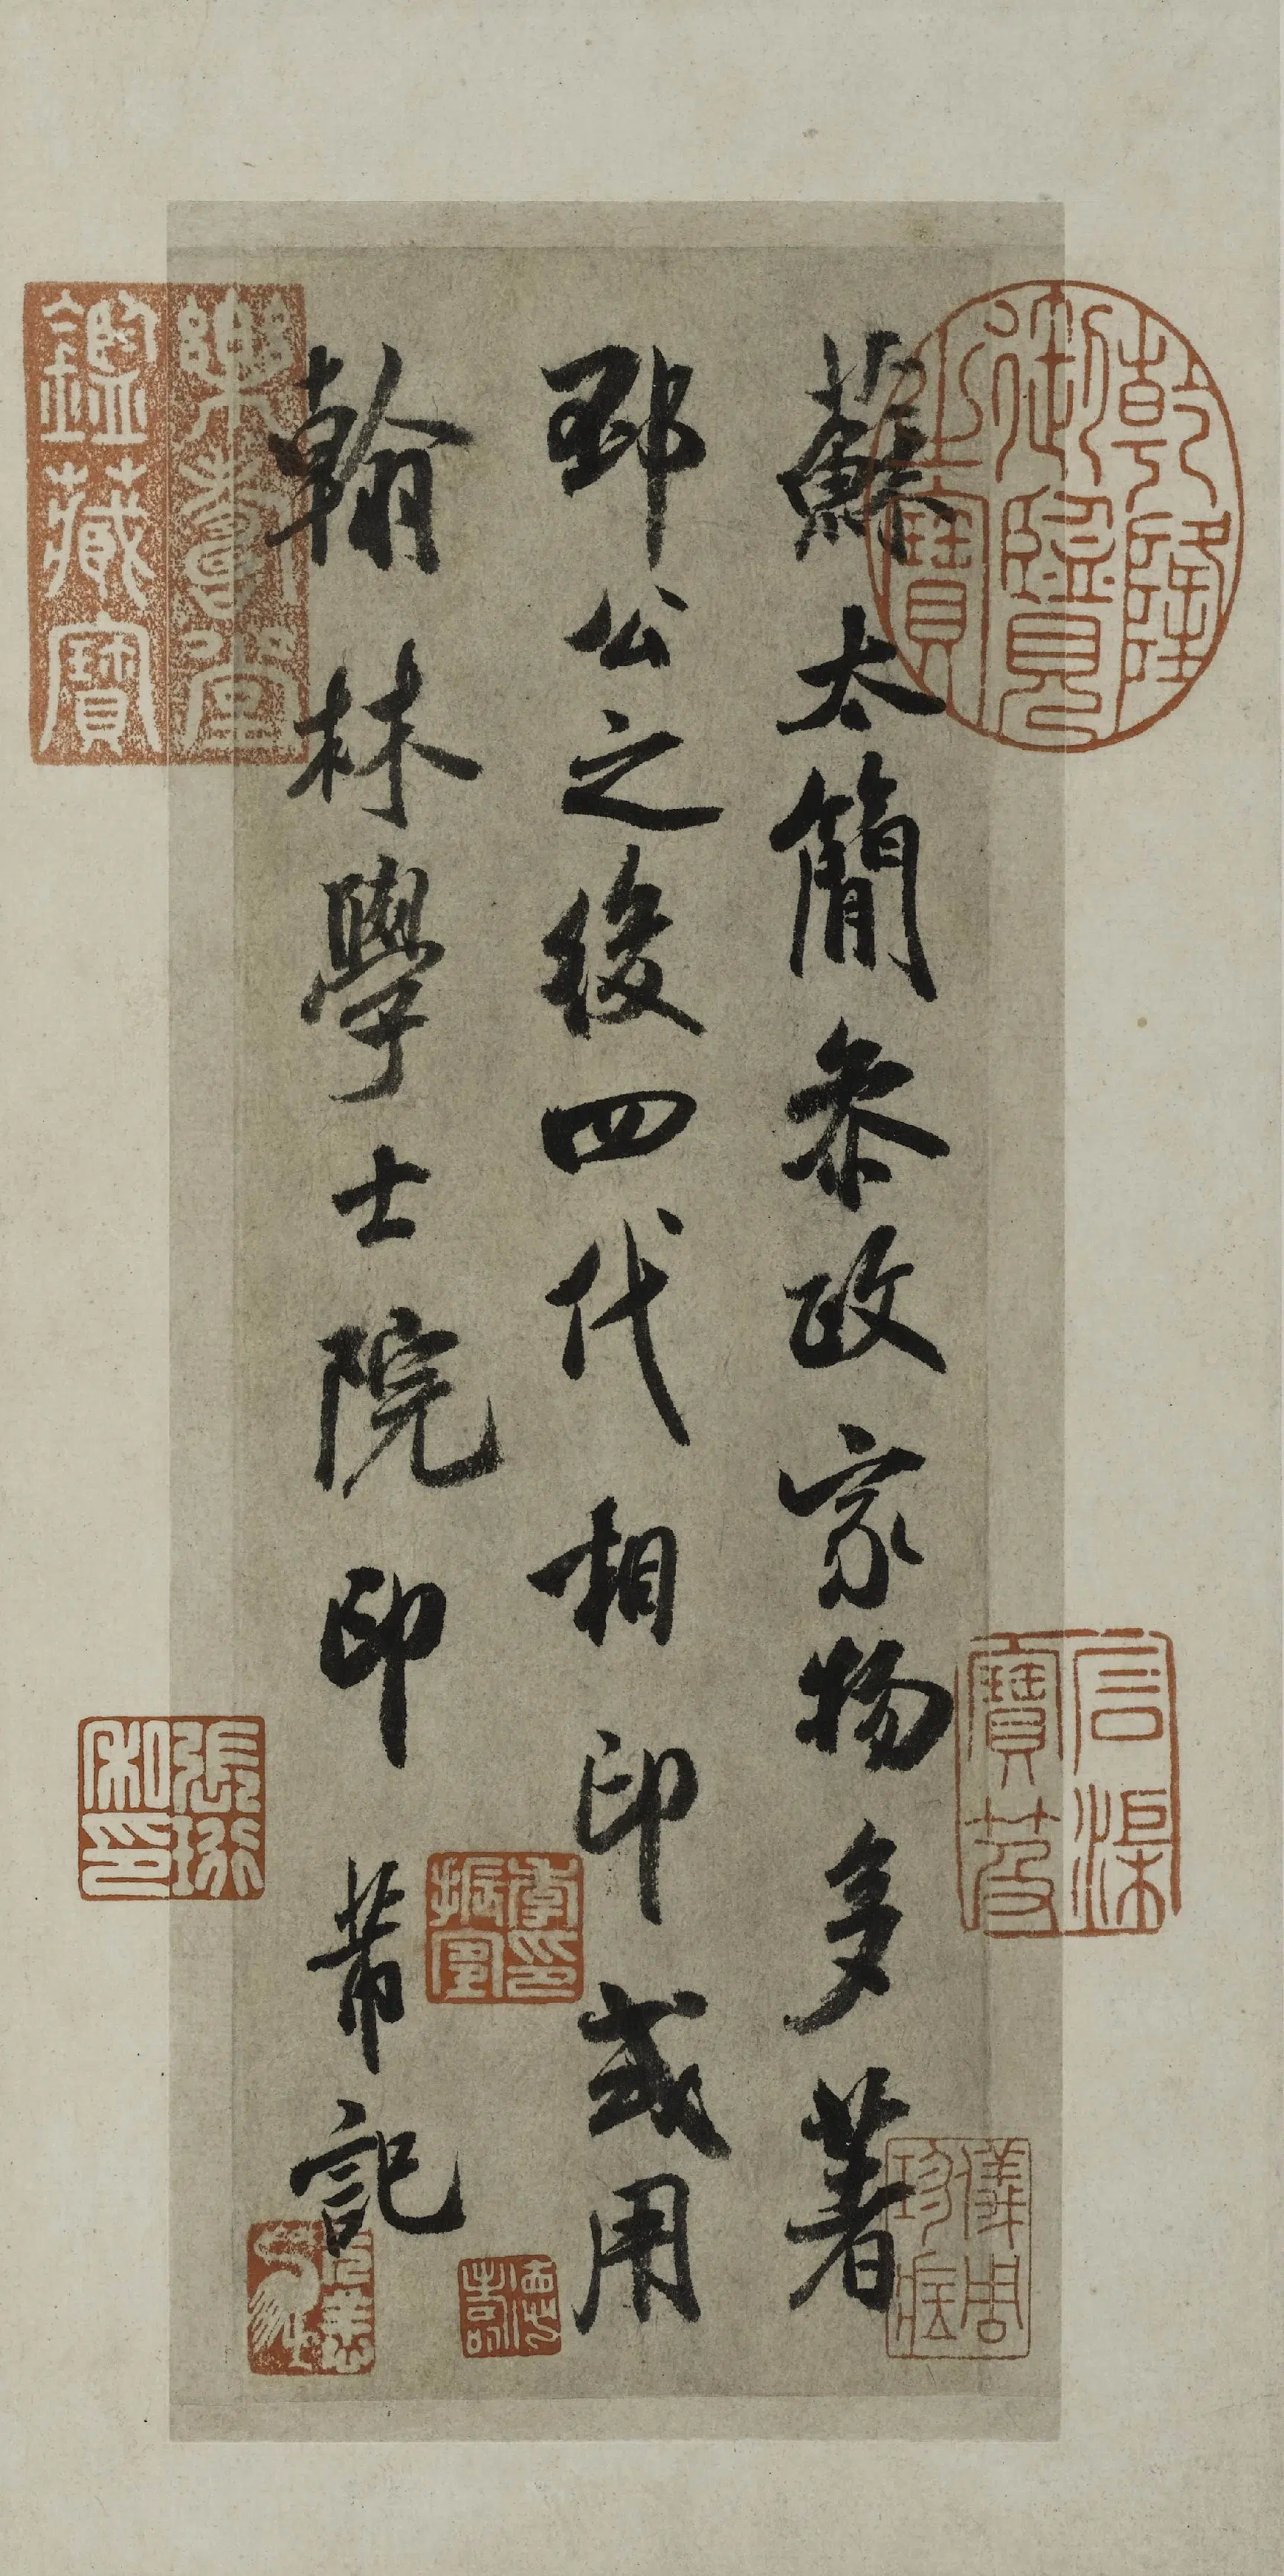 蘇太簡參政家物多著
邳公之後四代相印或用
翰林學士院印 芾記
乾隆御覽之寶
石渠寶笈
儀周珍藏
德壽
樂壽堂鑑藏寶
張珩私印